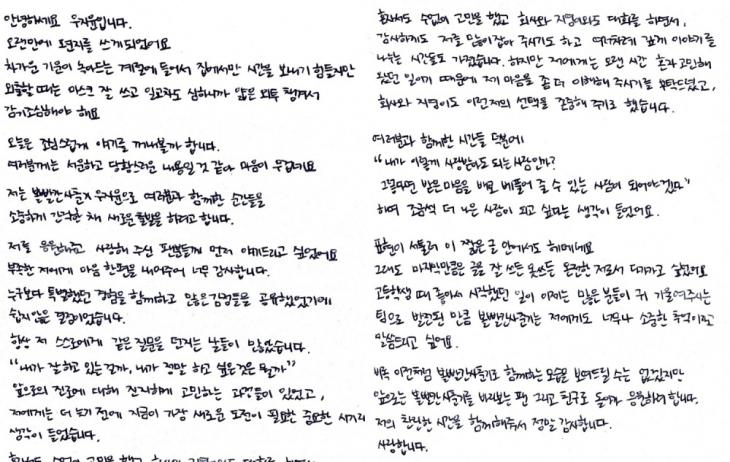 안녕하세요 우지윤입니다.
오랜만에 편지를 쓰게 되었어요
차가운 기운이 녹아드는 계절에 들어서 집에서만 시간을 보내기 힘들지만
외출할 때는 마스크 잘 쓰고 일교차도 심하니까 얇은 외투 챙겨서
감기조심해야 해요
오늘은 조심스럽게 얘기를 꺼내볼까 합니다.
여러분께는 서운하고 당황스러운 내용일 것 같아 마음이 무겁네요
저는 볼빨간사춘기 우지윤으로 여러분과 함께한 순간들을
소중하게 간직한 채 새로운 출발을 하려고 합니다.
저를 응원해주고 사랑해 주신 팬분들께 먼저 얘기드리고 싶었어요
부족한 저에게 마음 한편을 내어주어 너무 감사합니다.
누구보다 특별했던 경험을 함께하고 많은 감정들을 공유했었기에
쉽지 않은 결정이었습니다.
항상 저 스스로에게 같은 질문을 던지는 날들이 많았습니다.
"내가 잘하고 있는걸까, 내가 정말 하고 싶은 것은 뭘까"
앞으로의 진로에 대해 진지하게 고민하는 과정들이 있었고,
저에게는 더 늦기 전에 지금이 가장 새로운 도전이 필요한 중요한 시기라
생각이 들었습니다.
회사도 수없이 고민을 했고 회사와 지영이와도 대화를 하면서,
감사하게도 저를 많이 잡아 주시기도 하고 여러차례 깊게 이야기를
나누는 시간들도 가졌습니다. 하지만 저에게는 오랜 시간 혼자 고민해
왔던 일이기 때문에 제 마음을 좀 더 이해해 주시기를 부탁드렸고,
회사와 지영이도 이런 저의 선택을 존중해 주기로 했습니다.
여러분과 함께한 시간들 덕분에
"내가 이렇게 사랑받아도 되는 사람인가?
그렇다면 받은 마음을 배로 베풀어 줄 수 있는 사람이 되어야겠다"
하며 조금씩 더 나은 사람이 되고 싶다는 생각이 들었어요.
표현이 서툴러 이 짧은 글 안에서도 헤매네요
그래도 마지막만큼은 글을 잘 쓰든 못쓰든 온전한 저로서 다가가고 싶었어요
고등학생 때 좋아서 시작했던 일이 이제는 많은 분들이 귀 기울여주시는
팀으로 발전된 만큼 볼빨간사춘기는 저에게도 너무나 소중한 추억이라고
말씀드리고 싶어요.
비록 이전처럼 볼빨간사춘기로 함께하는 모습을 보여드릴 수는 없겠지만
앞으로는 볼빨간사춘기를 바라보는 팬 그리고 친구로 돌아가 응원하려 합니다.
저의 찬란한 시간을 함께해주셔서 정말 감사합니다.
사랑합니다.